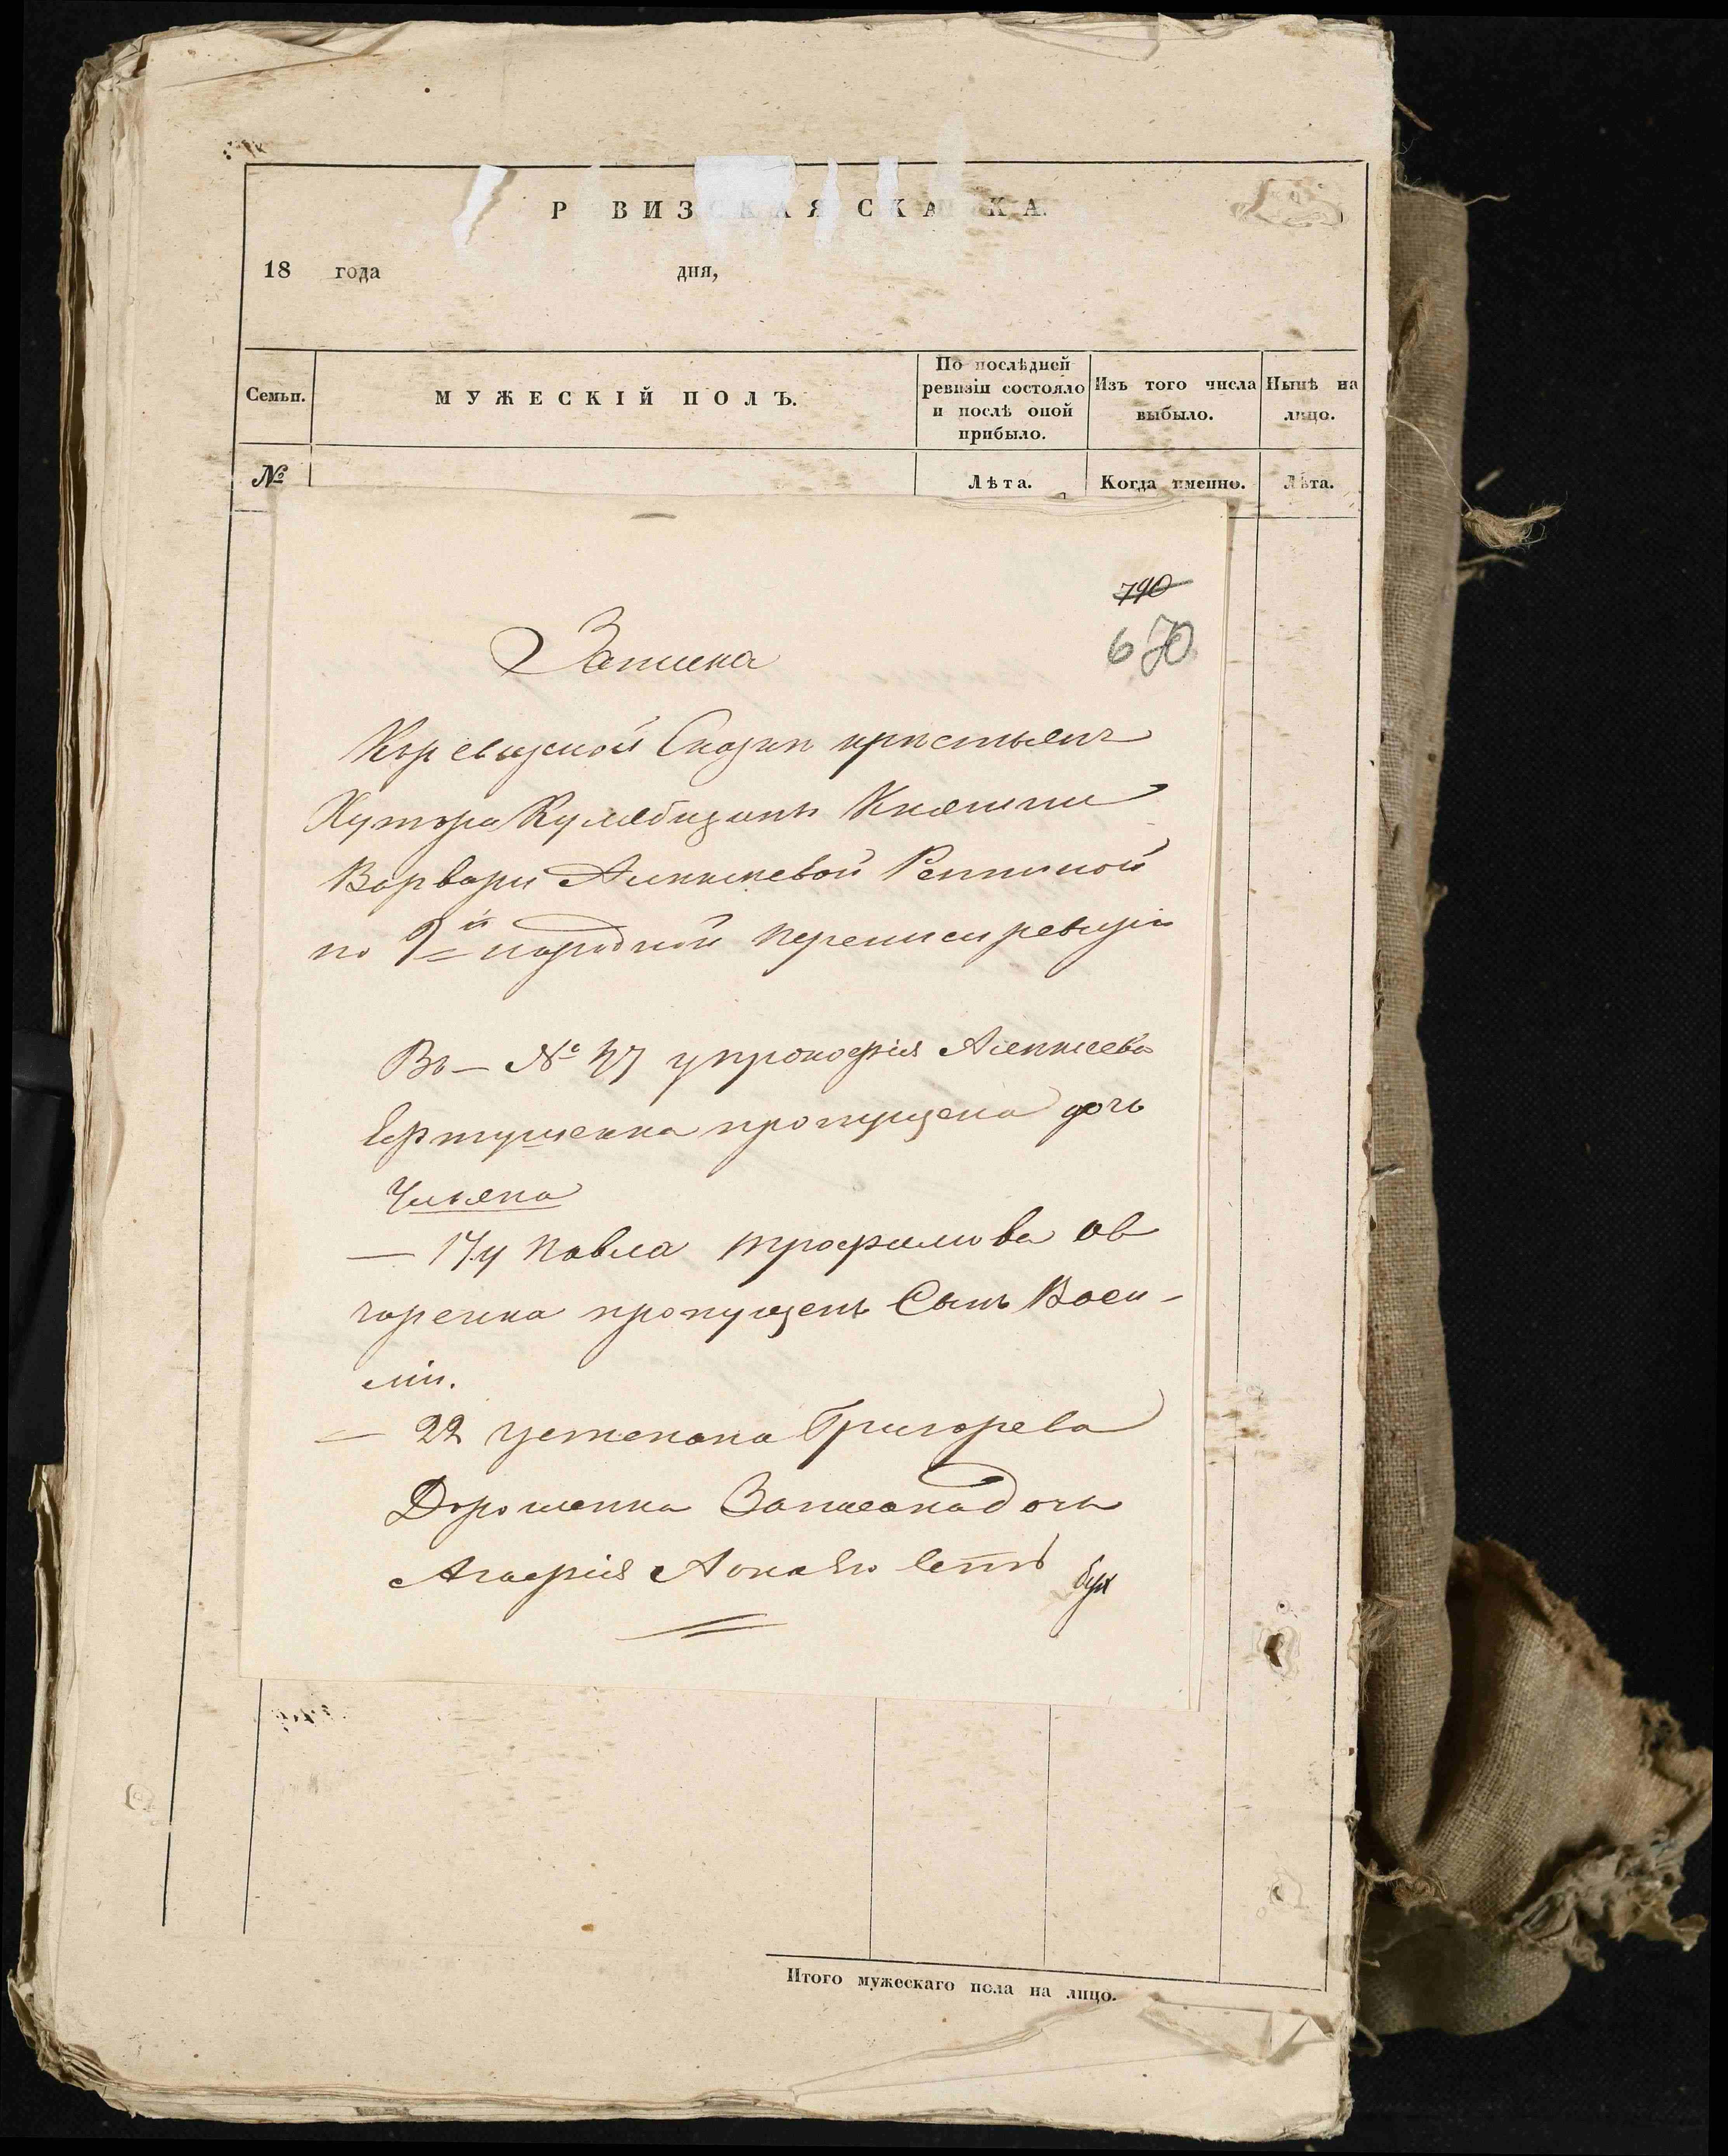 Р ВИЗСКАЯ СКА КА.
18 года дня,
Семьи.
МУЖЕСКІЙ ПОЛЪ.
По послѣдней ревизіи состояло и послѣ оной прибыло.
Изъ того числа выбыло.
Нынѣ на лицо.
№
Лѣта.
Когда именно.
Лѣта.
790
670
Записка
Къ ревизской Сказки кристьянъ
Хутора Княгини
Варвари Алексѣевой Репниной
по 9й народной переписи ревизіи
Въ - № у прокофія Алексѣева
пропущена дочь
Ульяна
— 17 у Павла трофимова Ов
чаренка пропущенъ Сынъ Васи-
лій.
— 22 устепана Григорева
Дорошенка Записана дочь
Агафія Аона
Итого мужескаго пола на лицо.